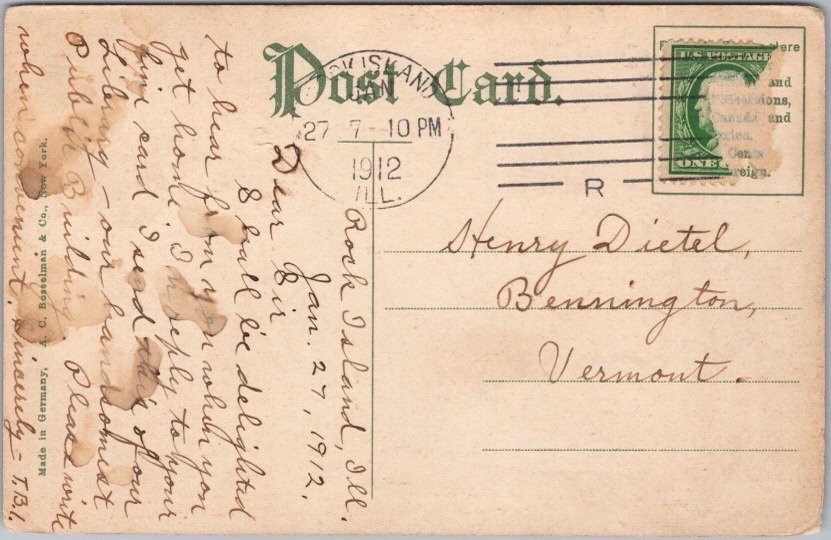 Post Card.
ROCK ISLAND
JAN
27 7-10 PM
1912
ILL.
R
U.S. POSTAGE
ONE
Henry Dietel,
Bennington,
Vermont.
Rock Island, Ill.
Jan. 27, 1912.
Dear Sir
Shall be delighted
to hear from you when you
get home. In reply to your
fine card I send this of our
Library - our handsomest
Public Building Please write
when convenient. Sincerely - T.B.
Made in Germany, A. C. Bosselman & Co., New York.
and
Canada and
Cents